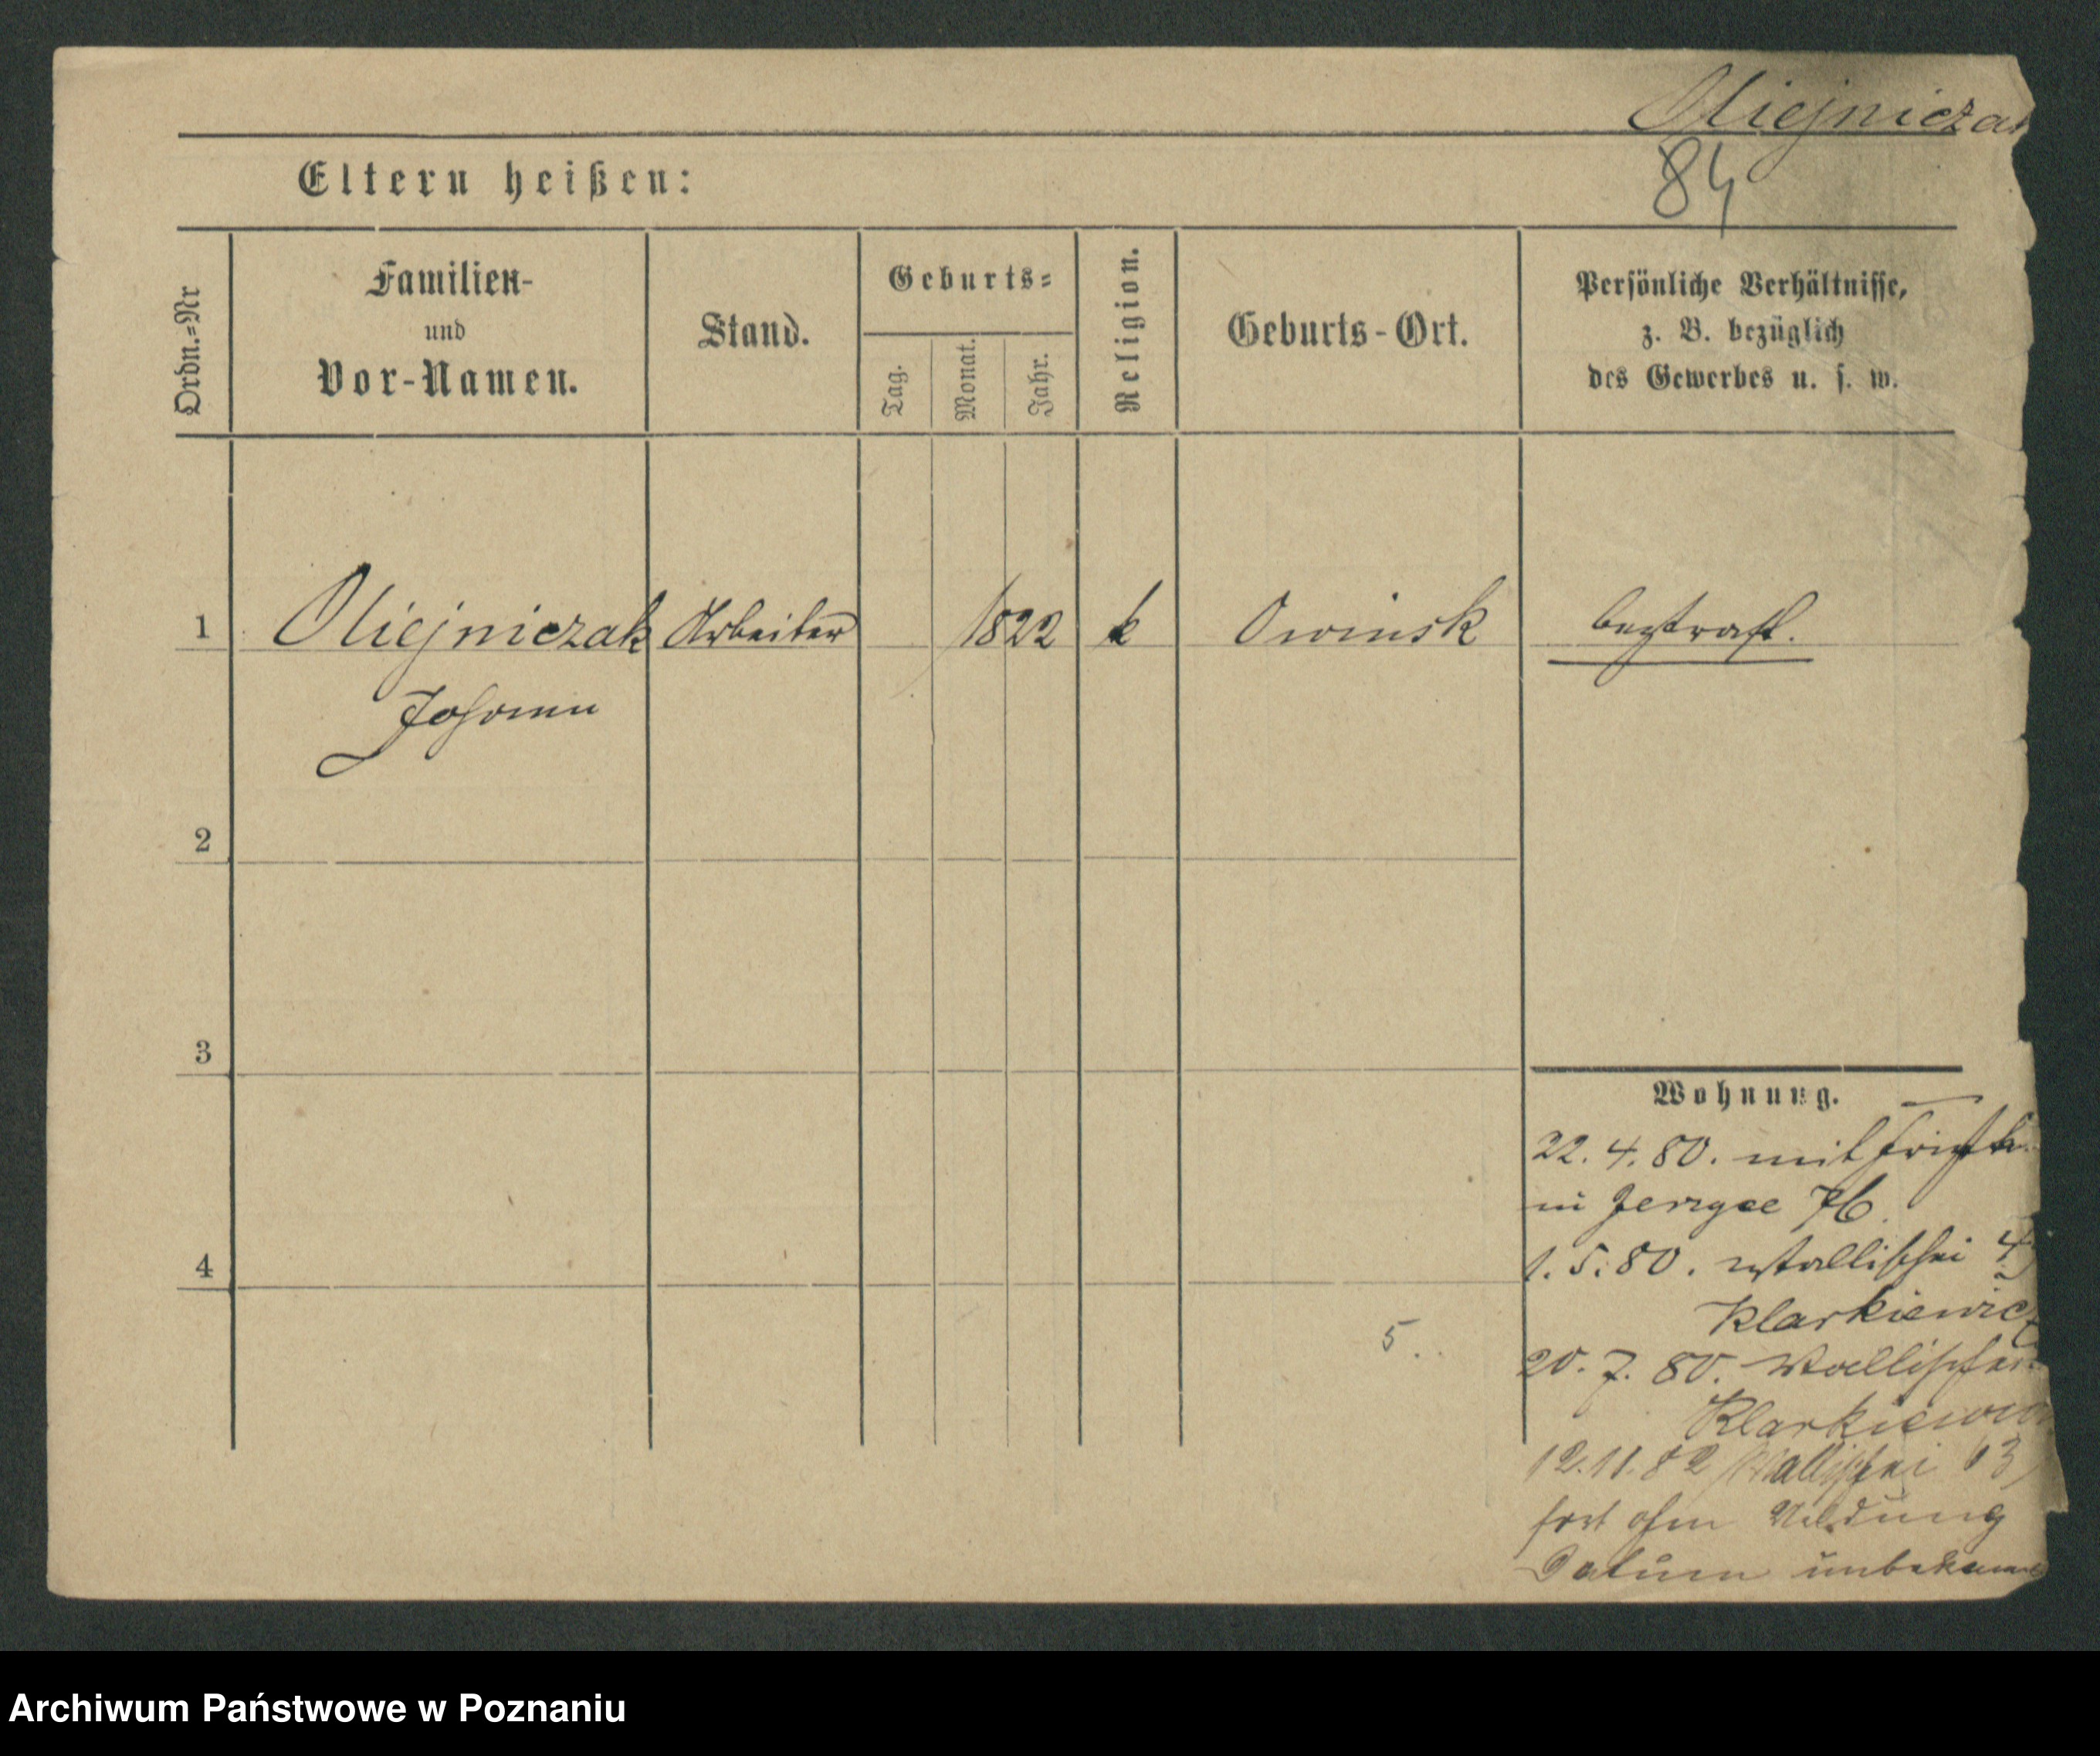 Oliejniczak
84
Eltern heißen:
Ordn.=Nr
Familien-
und
Vor-Namen.
Stand.
Geburts=
Tag.
Monat.
Jahr.
Religion.
Geburts-Ort.
Persönliche Verhältnisse,
z. B. bezüglich
des Gewerbes u. s. w.
1 Oliejniczak Arbeiter 1822 k Owinsk bestraft.
Johann
2
3
4
5..
Wohnung.
22. 4. 80. mit
in 76.
1. 5. 80. Wallischei 4
Klarkiewicz
20. 7. 80. Wallischei
Klarkiewicz
12.11.82 Wallischei 63
fort ohne Meldung
Datum unbekannt
Archiwum Państwowe w Poznaniu